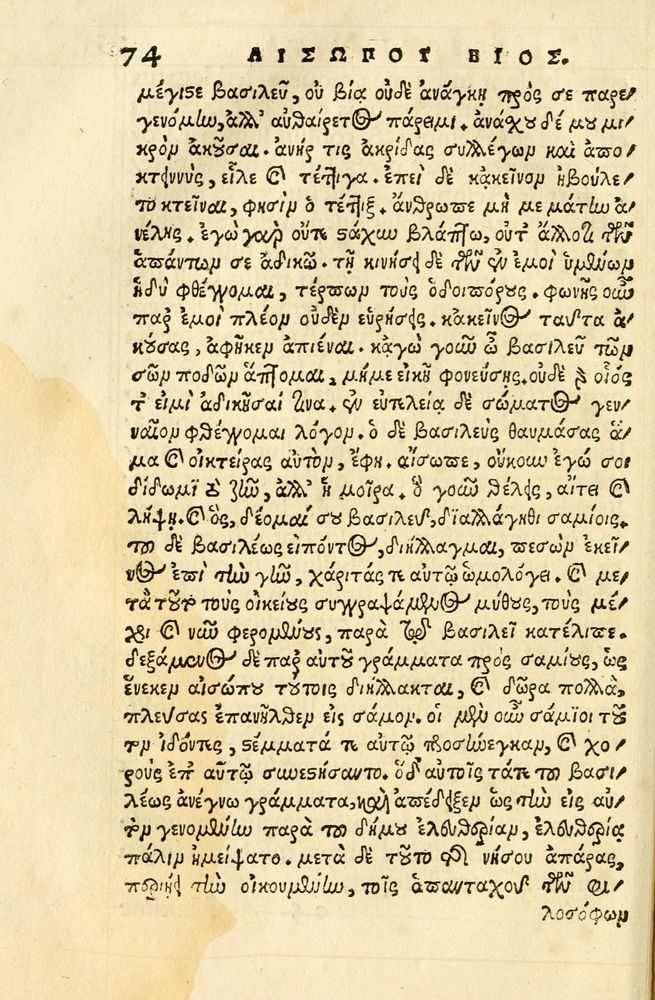 74 ΑΙΣΩΠΟΥ ΒΙΟΣ.
μέγιστε βασιλεῦ, οὐ βίᾳ οὐδὲ ἀνάγκῃ πρός σε παρε/
γενόμην, ἀλλ' αὐθαίρετος πάρειμι. ἀνάχου δέ μου μι/
κρὸν ἀκοῦσαι. ἀνήρ τις ἀκρίδας συλλέγων καὶ ἀπο/
κτιννὺς, εἷλε καὶ τέττιγα. ἐπεὶ δὲ κἀκεῖνον ἠβούλε/
το κτεῖναι, φησὶν ὁ τέττιξ. ἄνθρωπε μή με μάτην ἀ/
νέλῃς. ἐγὼ γὰρ οὔτε στάχυν βλάπτω, οὔτ' ἄλλο τι τῶν
ἁπάντων σε ἀδικῶ. τῇ κινήσει δὲ τῶν ἐν ἐμοὶ ὑμένων
ἡδὺ φθέγγομαι, τέρπων τοὺς ὁδοιπόρους. φωνῆς οὖν
παρ' ἐμοὶ πλέον οὐδὲν εὑρήσεις. κἀκεῖνος ταῦτα ἀ/
κούσας, ἀφῆκεν ἀπιέναι. κἀγὼ γοῦν ὦ βασιλεῦ τῶν
σῶν ποδῶν ἅπτομαι, μή με εἰκῇ φονεύσῃς. οὐδὲ γὰρ οἷός
τ' εἰμὶ ἀδικῆσαί τινα. ἐν εὐτελείᾳ δὲ σώματος γεν/
ναῖον φθέγγομαι λόγον. ὁ δὲ βασιλεὺς θαυμάσας ἅ/
μα καὶ οἰκτείρας αὐτὸν, ἔφη. αἴσωπε, οὐκ ἐγώ σοι
δίδωμι τὸ ζῆν, ἀλλ' ἡ μοῖρα. ὃ γοῦν θέλεις, αἴτει καὶ
λήψῃ. καὶ ὃς, δέομαί σου βασιλεῦ, διαλλάγηθι σαμίοις.
τοῦ δὲ βασιλέως εἰπόντος, διήλλαγμαι, πεσὼν ἐκεῖ/
νος ἐπὶ τὴν γῆν, χάριτάς τε αὐτῷ ὡμολόγει. καὶ με/
τὰ τοῦτο τοὺς οἰκείους συγγραψάμενος μύθους, τοὺς μέ/
χρι καὶ νῦν φερομένους, παρὰ τῷ βασιλεῖ κατέλιπε.
δεξάμενος δὲ παρ' αὐτοῦ γράμματα πρὸς σαμίους, ὡς
ἕνεκεν αἰσώπου τούτοις διήλλακται, καὶ δῶρα πολλὰ,
πλεύσας ἐπανῆλθεν εἰς σάμον. οἱ μὲν οὖν σάμιοι τοῦ/
τον ἰδόντες, στέμματά τε αὐτῷ προσήνεγκαν, καὶ χο/
ροὺς ἐπ' αὐτῷ συνεστήσαντο. ὁ δ' αὐτοῖς τά τε τοῦ βασι/
λέως ἀνέγνω γράμματα, καὶ ἀπέδειξεν ὡς τὴν εἰς αὐ/
τὸν γενομένην παρὰ τοῦ δήμου ἐλευθερίαν, ἐλευθερίᾳ
πάλιν ἠμείψατο. μετὰ δὲ τοῦτο τῆς νήσου ἀπάρας,
περιῄει τὴν οἰκουμένην, τοῖς ἁπανταχοῦ τῶν φι/
λοσόφων